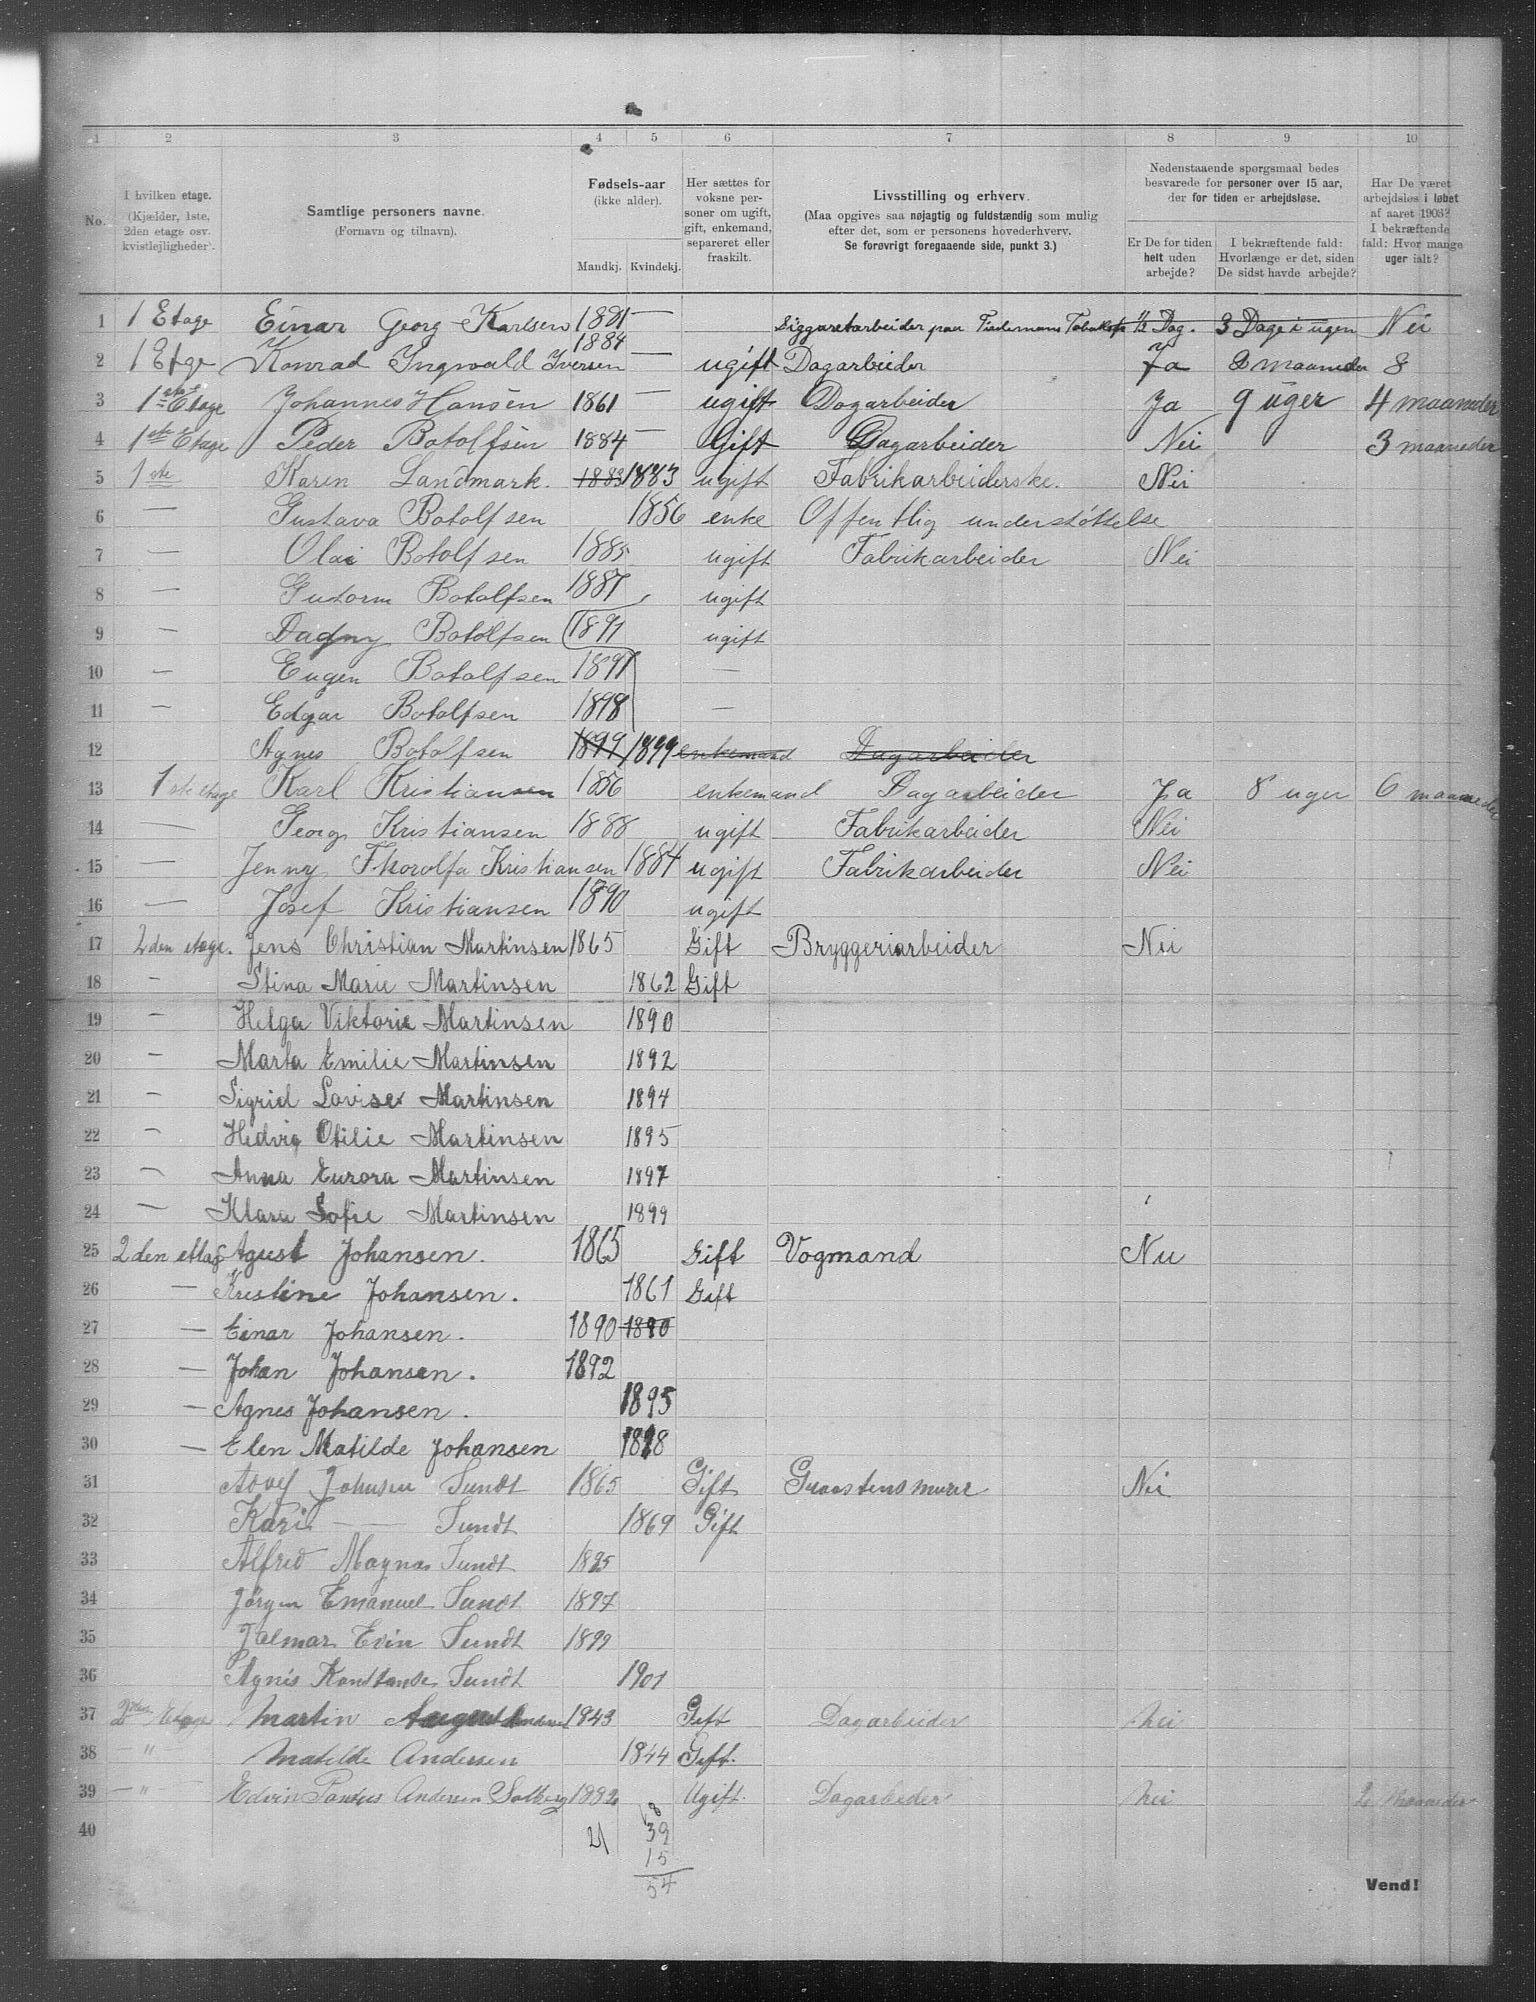 1 2 3 4 5 6 7 8 9 10
No.
I hvilken etage.
(Kjælder, 1ste,
2den etage osv.
kvistlejligheder).
Samtlige personers navne.
(Fornavn og tilnavn).
Fødsels-aar
(ikke alder).
Mandkj. Kvindekj.
Her sættes for
voksne per-
soner om ugift,
gift, enkemand,
separeret eller
fraskilt.
Livsstilling og erhverv.
(Maa opgives saa nøjagtig og fuldstændig som mulig
efter det, som er personens hovederhverv.
Se forøvrigt foregaaende side, punkt 3.)
Nedenstaaende spørgsmaal bedes
besvarede for personer over 15 aar,
der for tiden er arbejdsløse.
Er De for tiden
helt uden
arbejde?
I bekræftende fald:
Hvorlænge er det, siden
De sidst havde arbejde?
Har De været
arbejdsløs i løbet
af aaret 1903?
I bekræftende
fald: Hvor mange
uger ialt?
1 1 Etage Einar Georg Karlsen 1881 — Siggaretarbeider paa Tiedemans Tobaksfa ½ Dag. 3 Dage i ugen Nei
2 1 Etge Konrad Ingwald Iversen 1884 — ugift Dagarbeider Ja 2 maaneder 8
3 1ste Etage Johannes Hansen 1861 — ugift Dagarbeider Ja 9 uger 4 maaneder
4 1ste Etage Peder Botolfsen 1884 — Gift Dagarbeider Nei 3 maaneder
5 1ste Karen Landmark. 1883 1883 ugift Fabrikarbeiderske. Nei
6 — Gustava Botolfsen 1856 enke Offentlig understøttelse
7 — Olai Botolfsen 1885 ugift Fabrikarbeider Nei
8 — Gudorm Botolfsen 1887 ugift
9 — Dagny Botolfsen 1891 ugift
10 — Eugen Botolfsen 1897 —
11 — Edgar Botolfsen 1898 —
12 Agnes Botolfsen 1899 1899 enkemand Dagarbeider
13 1ste etage Karl Kristiansen 1856 enkemand Dagarbeider Ja 8 uger 6 maaneder
14 — Georg Kristiansen 1888 ugift Fabrikarbeider Nei
15 — Jenny Thorolfa Kristiansen 1884 ugift Fabrikarbeider Nei
16 — Josef Kristiansen 1890 ugift
17 2den etage. Jens Christian Martinsen 1865 Gift Bryggeriarbeider Nei
18 — Stina Marie Martinsen 1862 Gift
19 — Helga Viktoria Martinsen 1890
20 — Marta Emilie Martinsen 1892
21 — Sigrid Lovise Martinsen 1894
22 — Hedvig Otilie Martinsen 1895
23 — Anna Eurora Martinsen 1897
24 — Klara Sofie Martinsen 1899
25 2 den ettag Agust Johansen. 1865 Gift Vogmand Nei
26 — Kristine Johansen. 1861 Gift
27 — Einar Johansen. 1890 1890
28 — Johan Johansen. 1892
29 — Agnes Johansen. 1895
30 — Elen Matilde Johansen 1898
31 Adolf Johnsen Sundt 1865 Gift Graastensmurer Nei
32 Kari — Sundt 1869 Gift
33 Alfred Magnas Sundt 1895
34 Jörgen Emanuel Sundt 1897
35 Jalmar Evin Sundt 1899
36 Agnes Konstanse Sundt 1901
37 2den Etage Martin August 1843 Gift Dagarbeider Nei
38 — " — Matilde Andersen 1844 Gift.
39 — " — Edvin Andersen Solberg 1882 Ugift. Dagarbeder Nei 2 Maaneder
40 21
18
39
15
54
Vend!